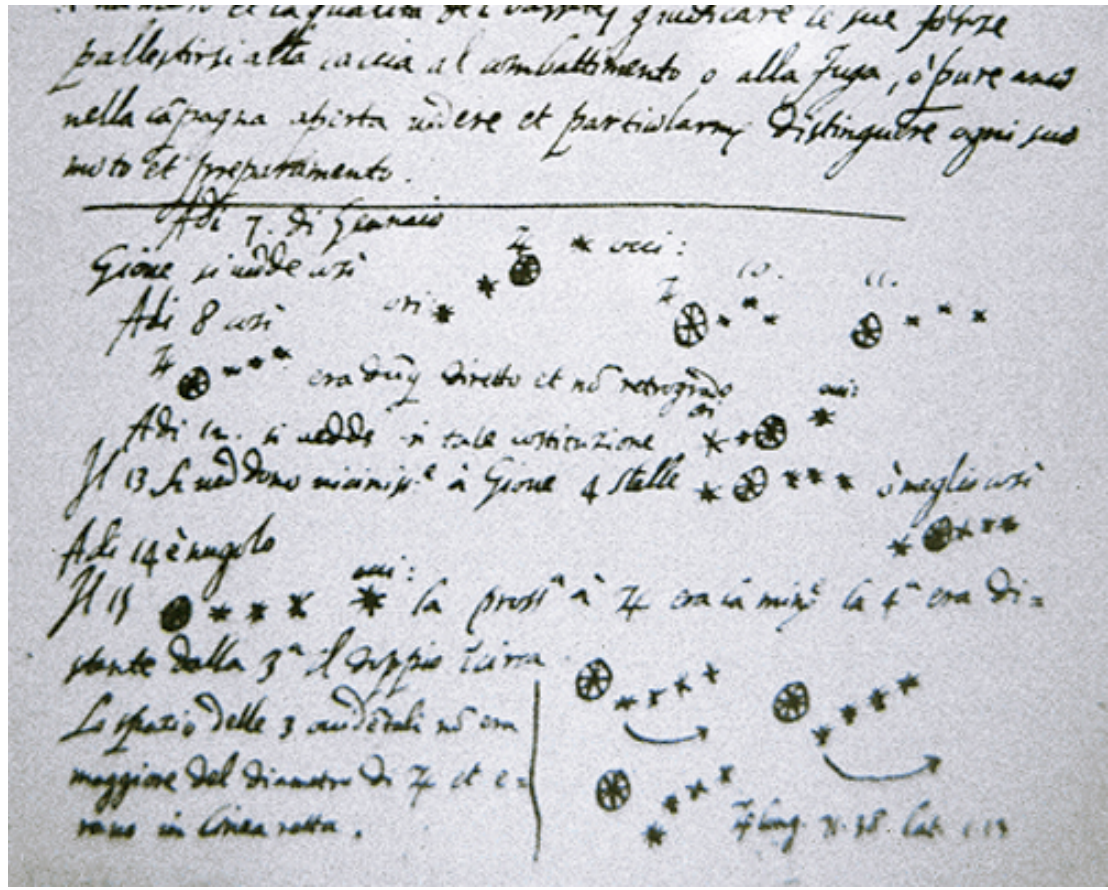 numero et la qualità de i vasselli giudicare le sue forze
pallestirsi alla caccia al combattimento o alla fuga, o pure anco
nella cāpagna aperta vedere et particolarmẽ distinguere ogni suo
moto et preparamento.
Adi 7. di Gennaio
Gione si vede così
♃ * occ:
ori * *
Adi 8 così
♃
10.
11.
♃ era dūq diretto et nō retrogrado
Adi 12. si vedde in tale costituzione
ori
occ:
Il 13 si veddono minimiss.e à Gione 4 stelle
ò meglio così
Adi 14 è nugolo
Il 15
occ:
la pross.a à ♃ era la min.e la 4.a era di=
stante dalla 3.a il doppio Icirca
Lo spazio delle 3 occidētali nō era
maggiore del diametro di ♃ et e=
rano in linea retta.
♃ long. 71.38 lat. 1.13